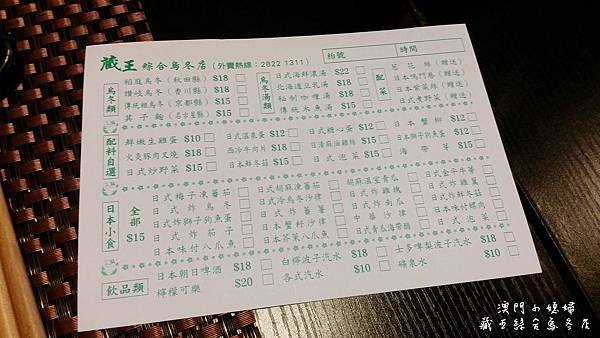 藏王 綜合烏冬店 (外賣熱線：2822 1311)
枱號 時間
烏冬類
稻庭烏冬 (秋田縣) $18
讚岐烏冬 (香川縣) $18
傳統粗烏冬 (京都縣) $15
其子麵 (名古屋縣) $15
烏冬湯類
日式海鮮濃湯 $22
北海道豆乳湯 $18
秘制咖哩湯 $18
傳統木魚湯 $15
配菜
葱花絲 (贈送)
日本鳴門卷 (贈送)
日本紫菜絲 (贈送)
日式麦野菜 (贈送)
配料自選
鮮椒生雞蛋 $10
火炙豚肉叉燒 $18
日式炒野菜 $15
日式溫泉蛋 $12
西冷牛肉片 $18
日本鮮冬菇 $15
日式糖心蛋 $12
日清麻油雞絲 $15
日式泡菜 $15
日本蟹柳 $12
日本獅子狗魚蛋 $12
海帶芽 $15
日本小食
全部 $15
日式梅子凍蕃茄
日式炸烏冬
日式炸獅子狗魚蛋
日式炸茄子
日本味付八爪魚
日式胡麻凍蕃茄
日式冷烏冬沙律
日式炸蕃薯
日本蟹籽沙律
日本芥茉八爪魚
胡麻溫室青瓜
日式炸雞塊
日式炸南瓜
中華沙律
日式青瓜海帶醋
日式金平牛蒡
日式炸雞翼
日式炸鮮冬菇
日本味付螺肉
日式泡菜
飲品類
日本朝日啤酒 $18
檸檬可樂 $20
白檸波子汽水 $18
各式汽水 $10
士多啤梨波子汽水 $18
礦泉水 $10
澳門小媳婦
藏王綜合烏冬店